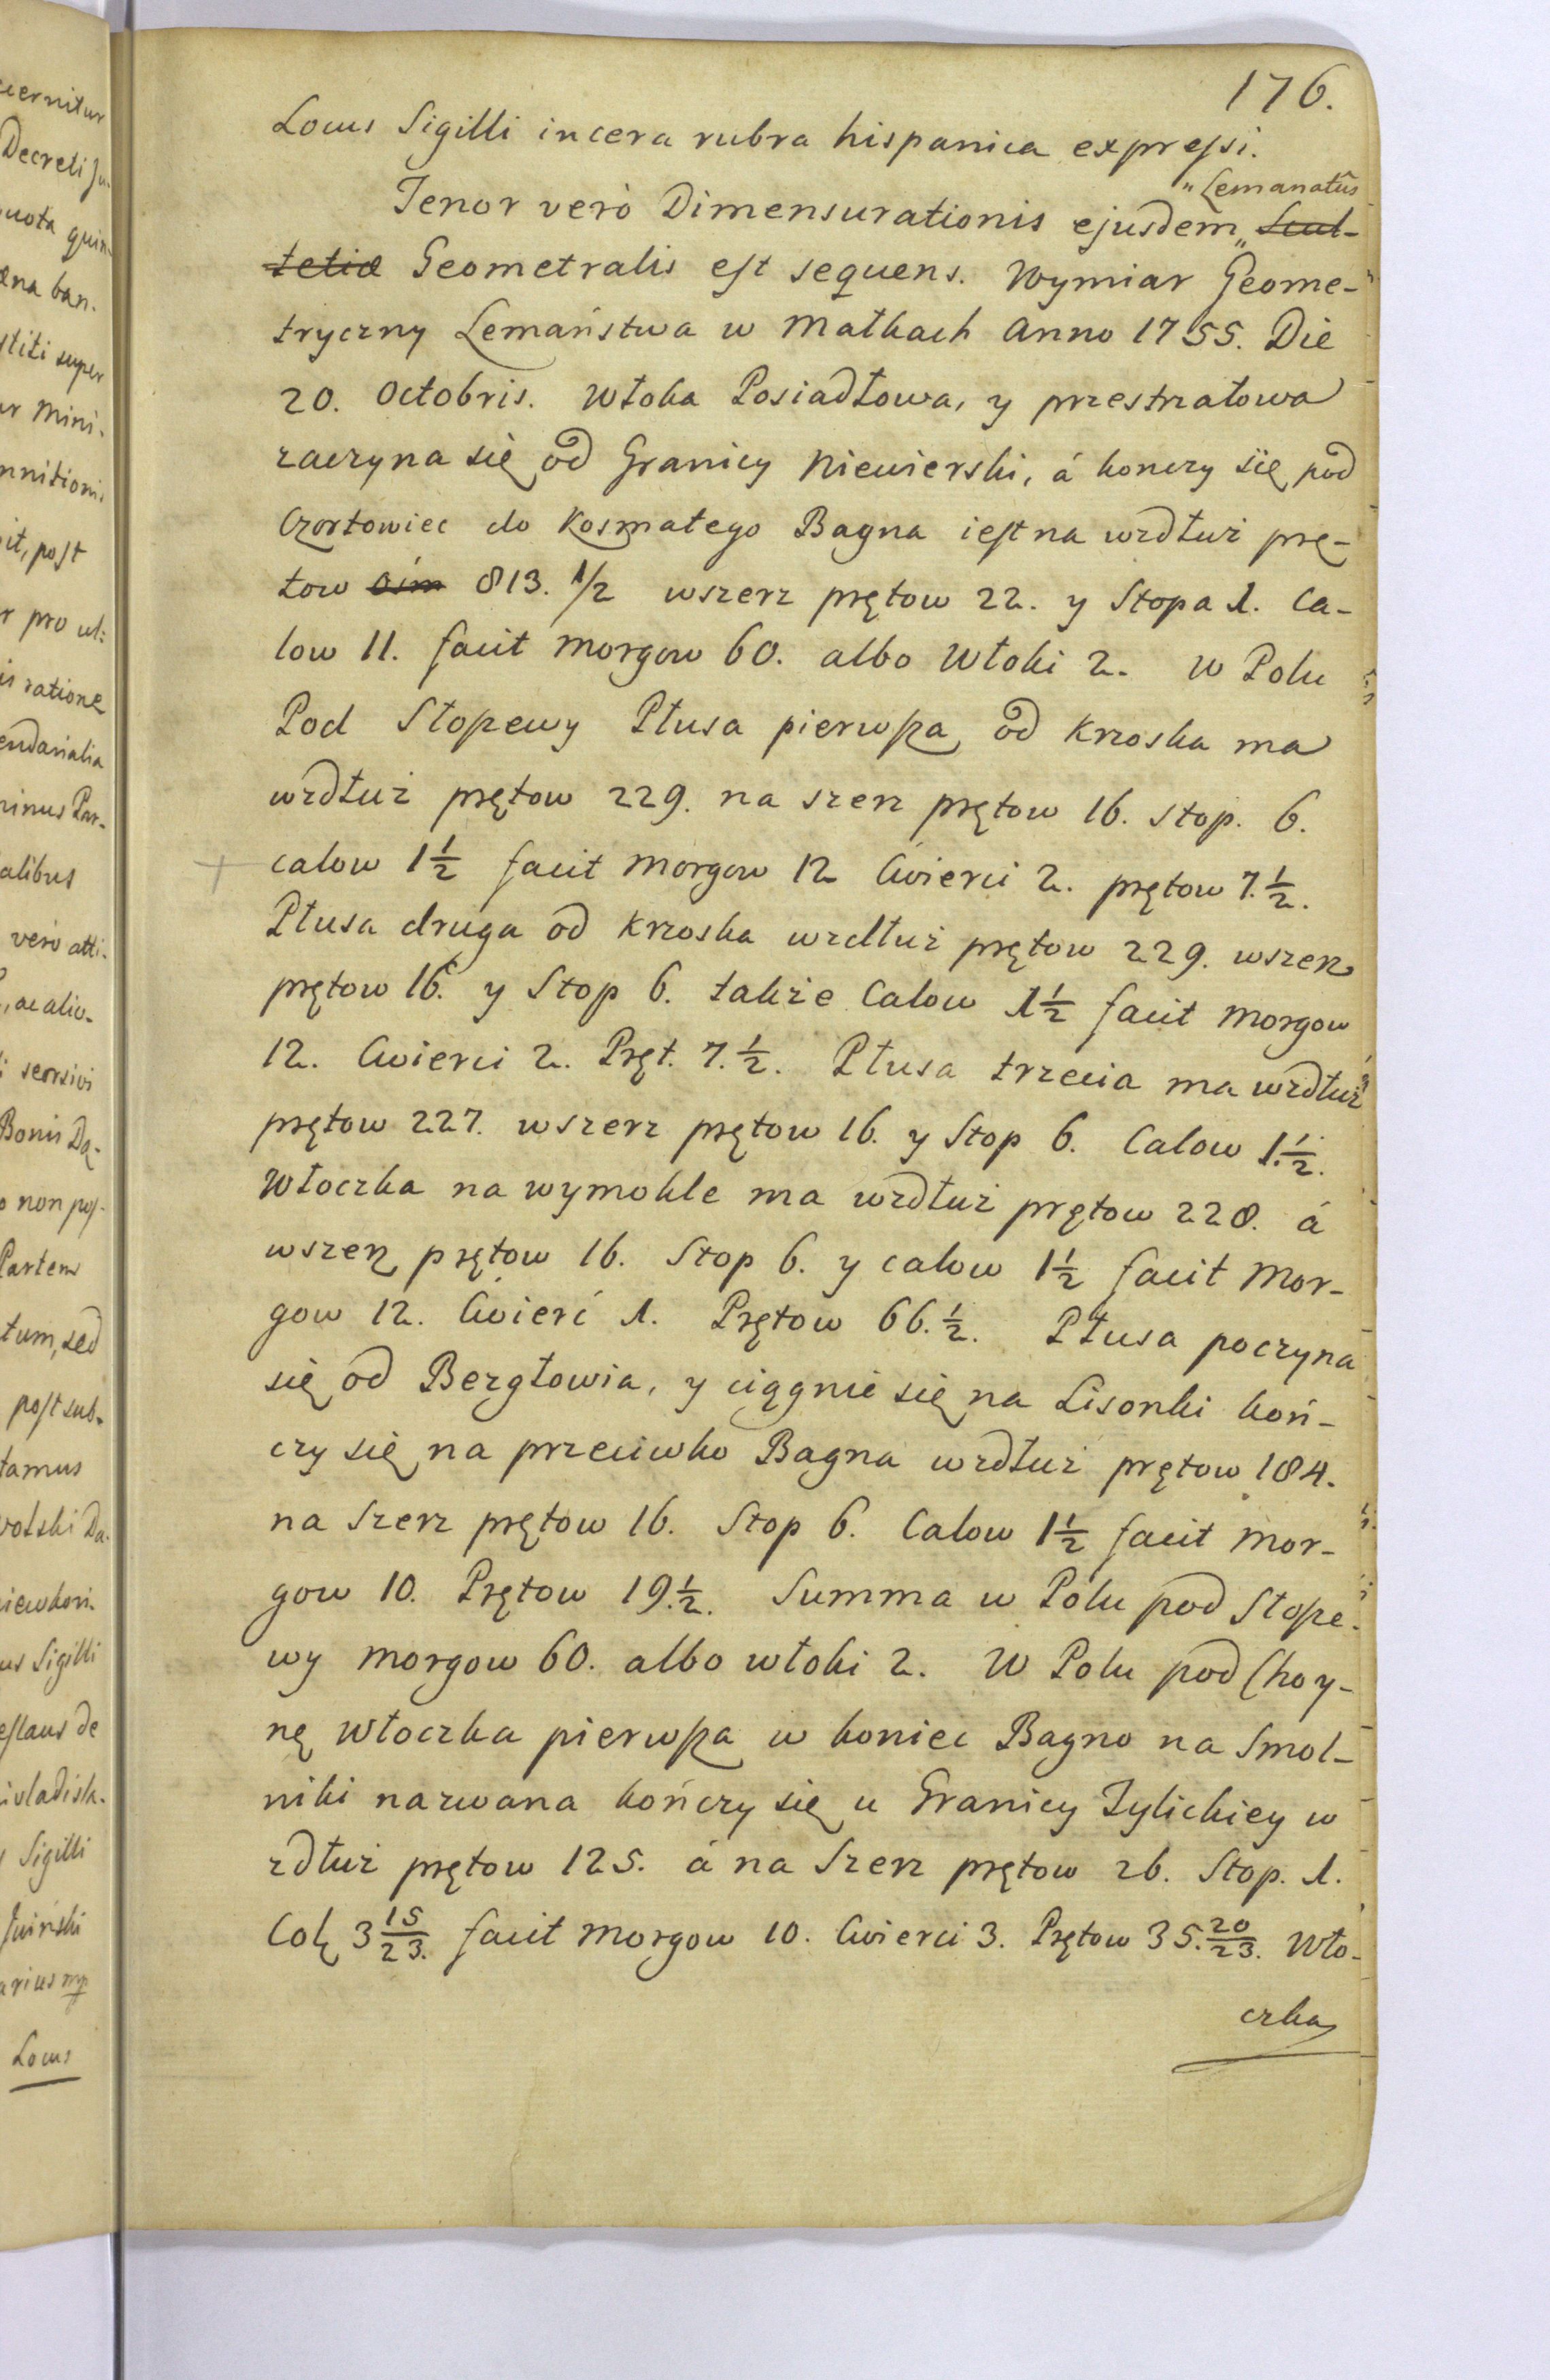 176.
Locus Sigilli in cera rubra hispanica expressi.
Tenor verò Dimensurationis ejusdem „ Lemanatûs Scul-
tetiæ Geometralis est sequens. Wymiar Geome-
tryczny Lemaństwa w Małkach Anno 1755. Die
20. Octobris. Włoka Posiadłowa, y przestrzałowa
zaczyna się od Granicy Niewierski, á konczy się pod
Czortowiec do Kosmatego Bagna iest na wzdłuż prę-
tow osm 813. 1/2 wszerz prętow 22. y Stopa 1. Ca-
low 11. facit morgow 60. albo Włoki 2. W Polu
Pod Stopewy Płusa pierwsza od Krzoska ma
wzdłuż prętow 229. na szerz prętow 16. stop. 6.
calow 1 1/2 facit morgow 12 Cwierci 2. prętow 7. 1/2.
Płusa druga od Krzoska wzdłuż prętow 229. wszerz
prętow 16. y Stop 6. takze Calow 1 1/2 facit morgow
12. Cwierci 2. Pręt. 7. 1/2. Płusa trzecia ma wzdłuż
prętow 227. wszerz prętow 16. y Stop 6. Calow 1. 1/2.
Włoczka na wymokle ma wzdłuż prętow 228. á
wszerz prętow 16. Stop 6. y calow 1 1/2 facit Mor-
gow 12. Cwierć 1. Prętow 66. 1/2. Płusa poczyna
się od Bezgłowia, y ciągnie się na Lisonki koń-
czy się na przeciwko Bagna wzdłuż prętow 184.
na szerz prętow 16. Stop 6. Calow 1 1/2 facit mor-
gow 10. Prętow 19. 1/2. Summa w Polu pod Stope-
wy morgow 60. albo włoki 2. W Polu pod Choy-
nę Włoczka pierwsza w koniec Bagno na Smol-
niki nazwana kończy się u Granicy Zylickiey w
zdłuż prętow 125. á na szerz prętow 26. Stop. 1.
Col 3 15/23. facit morgow 10. Cwierci 3. Prętow 35. 20/23. Wło-
czka
cernitur
Decreti Ju-
quota quin-
ana ban.
stiti super
Mini-
it, post
r pro ul:
is ratione
endarialia
alibus
verò atti-
ac aliv-
seorsivi
Bonis Dą-
o non pos-
Partem
tum, sed
post sub-
tamus
us Sigilli
eslaus de
uladisla-
Sigilli
arius mp
Locus